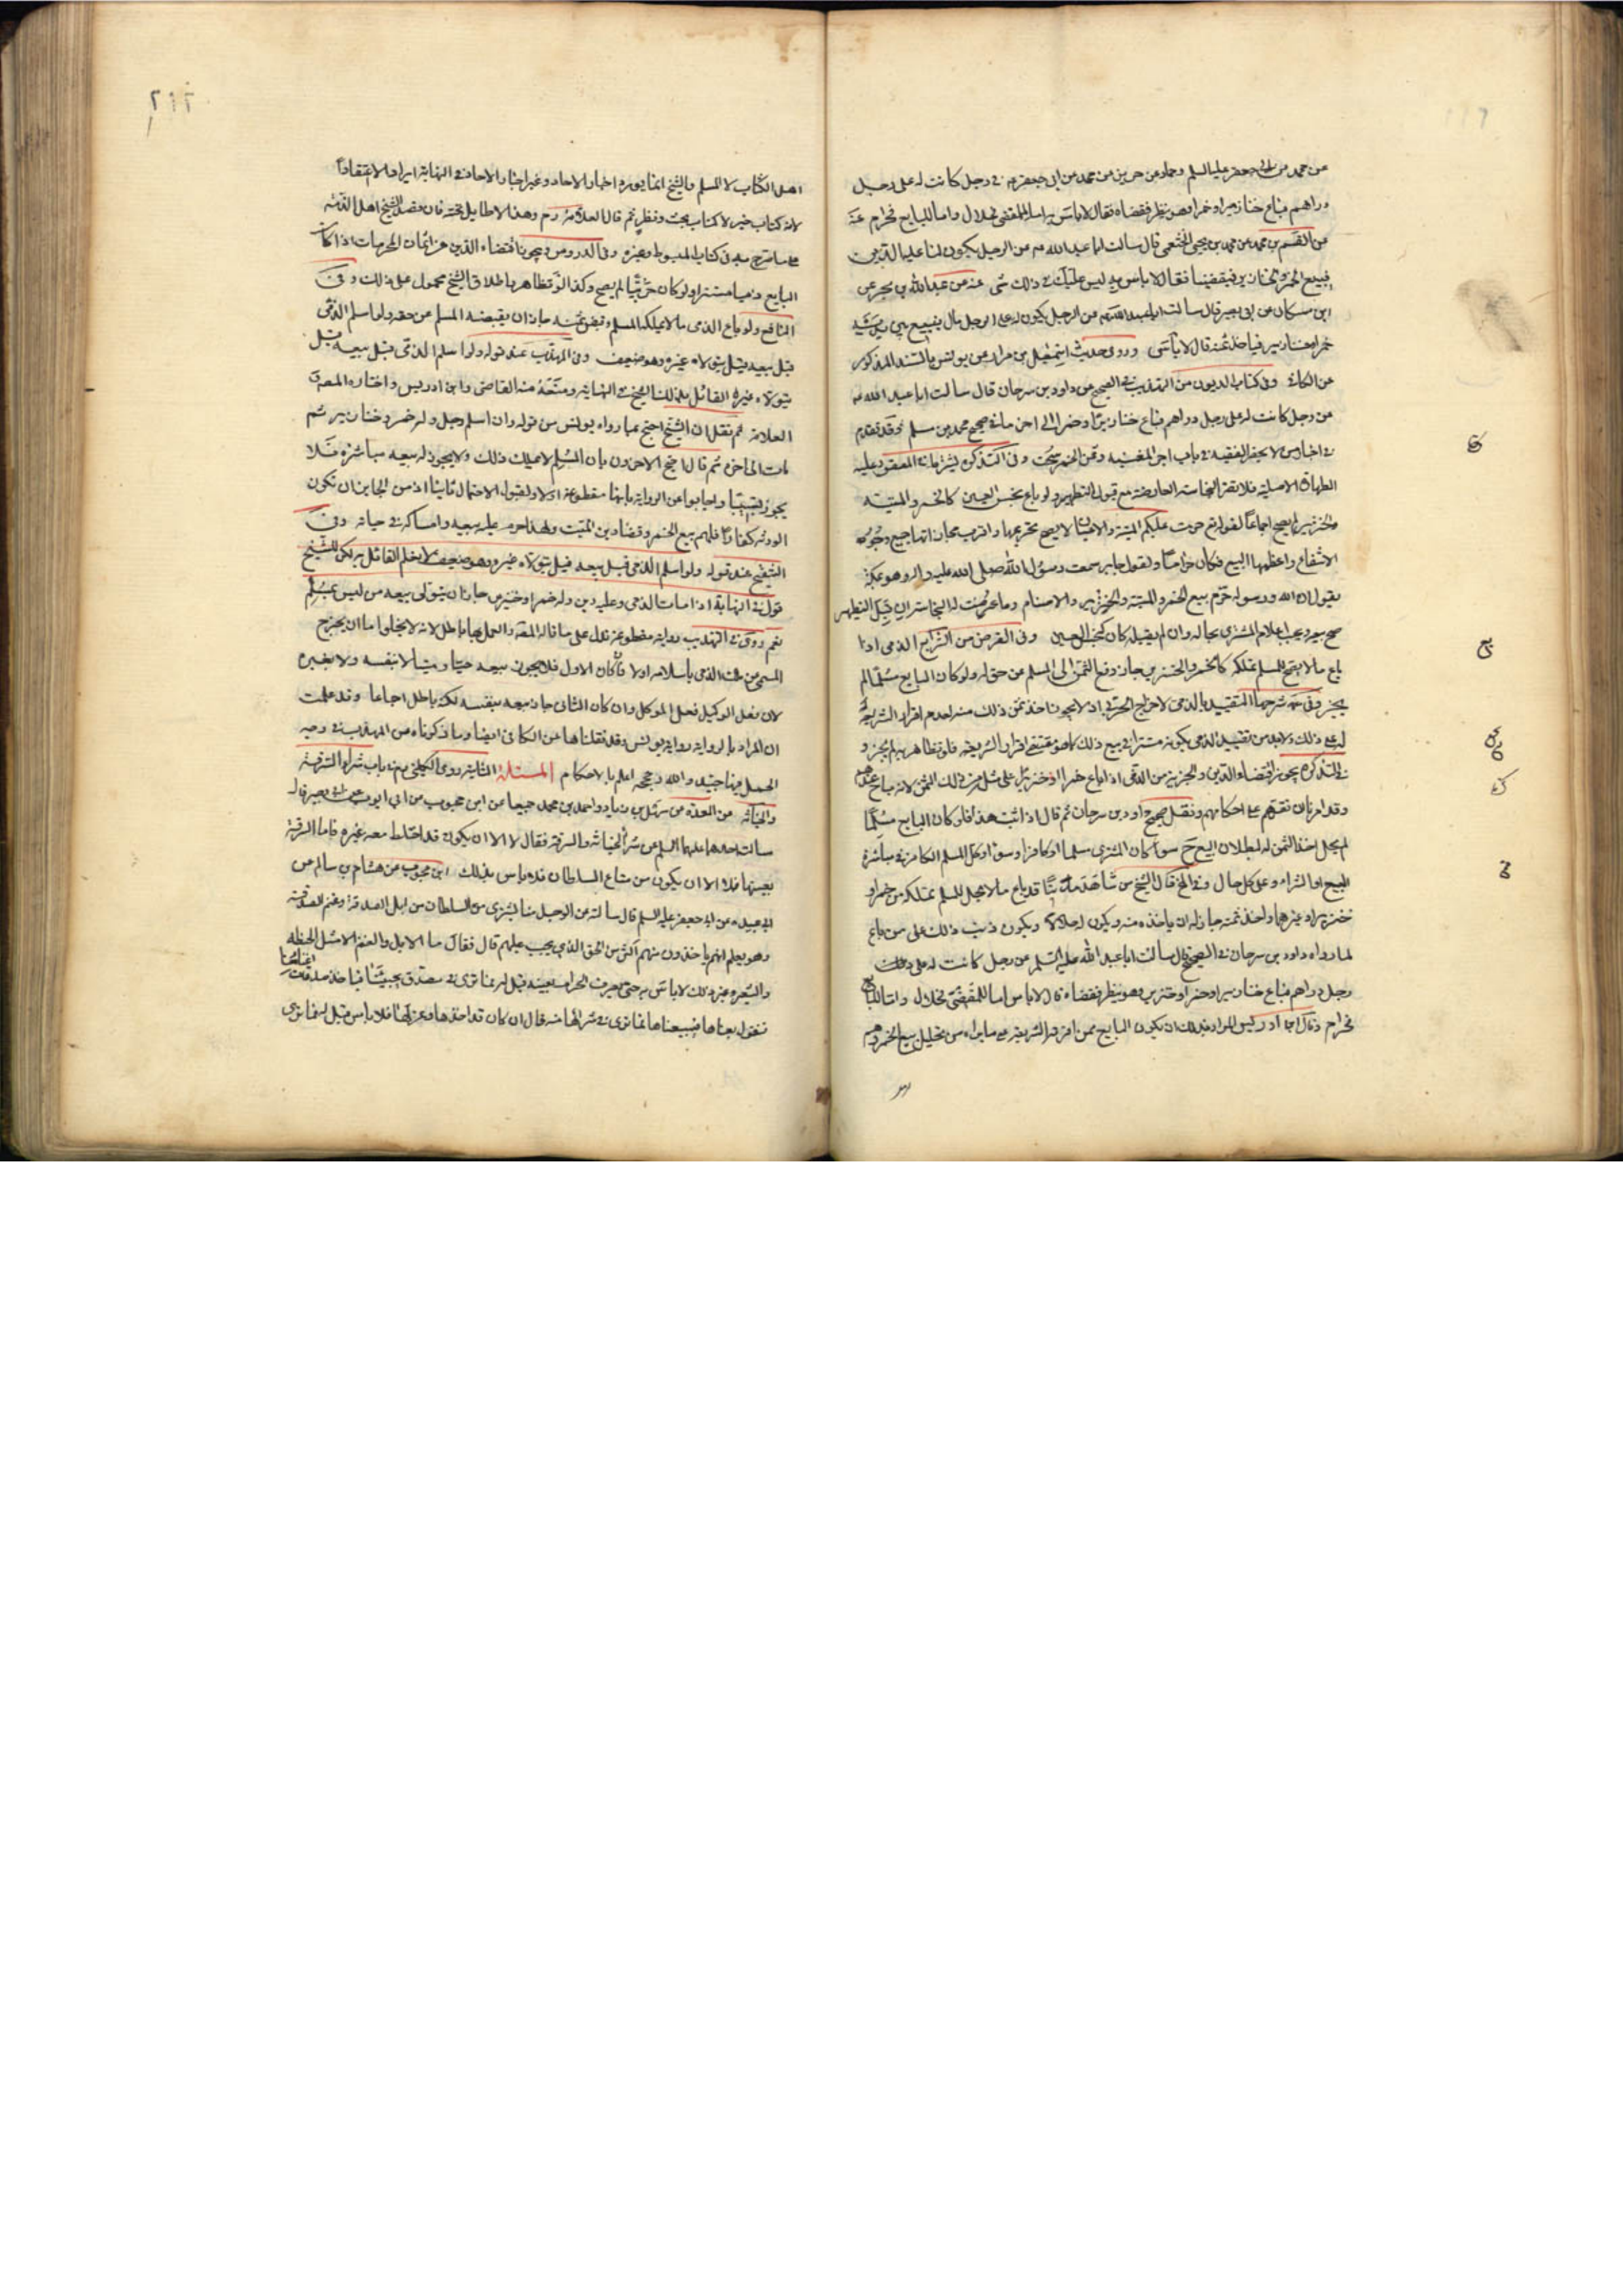 عن محمد عن ابى جعفر عليه السلم وحماد عن حريز عن محمد عن ابى جعفر ع فى رجل كانت له على رجل
دراهم فباع خنازير او خمرا وهو ينظر فقضاه فقال لا باس به اما للمقتضى فحلال واما للبايع فحرام عنه
عن القسم بن محمد عن محمد بن يحيى الخثعمى قال سالت ابا عبد الله ع عن الرجل يكون لنا عليه الدين
فيبيع الخمر والخنازير فيقضينا فقال لا باس به ليس عليك فى ذلك شى عنه عن عبد الله بن بحر عن
ابن مسكان عن ابى بصير قال سالت ابا عبد الله ع عن الرجل يكون له على الرجل مال فيبيع بين يديه
خمرا وخنازير فياخذ ثمنه قال لا باس وروى حديث اسمعيل بن مرار عن يونس بالسند المذكور
عن الكافى وفى كتاب الديون من التهذيب فى الصحيح عن داود بن سرحان قال سالت ابا عبد الله ع
عن رجل كانت له على رجل دراهم فباع خنازير او خمرا الى اخر ما فى صحيح محمد بن مسلم وقد تقدم
فى اخبار من لا يحضره الفقيه فى باب اجر المغنية وثمن الخمر سحت وفى التذكرة يشترط فى المعقود عليه
الطهارة الاصلية فلا تضر النجاسة العارضة مع قبول التطهير ولو باع نجس العين كالخمر والميتة
والخنزير لم يصح اجماعا لقوله تع حرمت عليكم الميتة والاعيان لا يصح تحريمها واقرب مجاز اليها جميع وجوه
الانتفاع واعظمها البيع فكان حراما ولقول جابر سمعت رسول الله صلى الله عليه واله وهو بمكة
يقول ان الله ورسوله حرم بيع الخمر والميتة والخنزير والاصنام وما عرضت له النجاسة ان قبل التطهير
صح بيعه ويجب اعلام المشترى بحاله وان لم يقبله كان كنجس العين وفى القرض من الشرايع الذمى اذا
باع ما لا يصح للمسلم تملكه كالخمر والخنزير جاز دفع الثمن الى المسلم عن حق له ولو كان البايع مسلما لم
يجز وفى شرحها التقييد بالذمى لاخراج الحربى اذ لا يجوز اخذ ثمن ذلك منه لعدم اقرار الشريعة
له على ذلك ولا بد من تقييد الذمى بكونه مستترا فى بيع ذلك كما هو مقتضى اقرار الشريعة فلو تظاهر به لم يجز و
فى التذكرة يجوز اقتضاء الدين والجزية من الذمى اذا باع خمرا او خنزيرا على مثله من ذلك الثمن لانه مباح عندهم
وقد امرنا ان نقرهم على احكامهم ونقل صحيح داود بن سرحان ثم قال اذا ثبت هذا فلو كان البايع مسلما
لم يحل اخذ الثمن له لبطلان البيع ح سواء كان المشترى مسلما او كافرا وسواء وكل المسلم الكافر فى مباشرة
البيع او الشراء وعلى كل حال وفى قال الشيخ من شاهد قد باع ما لا يحل للمسلم تملكه من خمر او
خنزير او غيرهما واخذ ثمنه جاز له ان ياخذه منه ويكون له حلالا ويكون ذنب ذلك على من باع
لما رواه داود بن سرحان فى الصحيح قال سالت ابا عبد الله عليه السلم عن رجل كانت له على
رجل دراهم فباع خنازير او خمرا وهو ينظر فقضاه قال لا باس اما للمقتضى فحلال واما للبايع
فحرام وقال ابن ادريس المراد بذلك ان يكون البايع ممن اقرته الشريعة على ما يراه من تحليل بيع الخمر وهم
اهل
٢١٢
اهل الكتاب لا المسلم والشيخ انما يورد اخبار الاحاد وغير اخبار الاحاد فى النهاية ايرادا لا اعتقادا
لانه كتاب خبر لا كتاب بحث ونظر ثم قال العلامة رح وهذا لا طايل تحته فان قصد الشيخ اهل الذمة
على ما شرح به فى كتاب المبسوط وغيره وفى الدروس ويجوز اقتضاء الدين من اثمان المحرمات اذا كان
البايع ذميا مستترا ولو كان حربيا لم يصح وكذا لو تظاهر واطلاق الشيخ محمول على ذلك وفى
النافع ولو باع الذمى ما لا يملكه المسلم وقبض ثمنه جاز ان يقبضه المسلم عن حقه ولو اسلم الذمى
قبل بيعه قيل يتولاه غيره وهو ضعيف وفى المهذب عند قوله ولو اسلم الذمى قبل بيعه قيل
يتولاه غيره القائل بذلك الشيخ فى النهاية ومنعه منه القاضى وابن ادريس واختاره المصنف و
العلامة ثم نقل ان الشيخ احتج بما رواه يونس من قوله وان اسلم رجل وله خمر وخنازير ثم
مات الى اخره ثم قال احتج الاخرون بان المسلم لا يملك ذلك ولا يجوز له بيعه مباشرة فلا
يجوز تسبيبا واجابوا عن الرواية بانها مقطوعة اولا ولقبول الاحتمال ثانيا اذ من الجايز ان تكون
الورثة كفارا فلهم بيع الخمر وقضاء دين الميت ولهذا حرم عليه بيعه وامساكه فى حياته وفى
التنقيح عند قوله ولو اسلم الذمى قبل بيعه قيل يتولاه غيره وهو ضعيف لا اعلم القائل به لكن للشيخ
قول فى النهاية اذا مات الذمى وعليه دين وله خمر او خنزير جاز ان يتولى بيعه من ليس بمسلم
نعم روى فى التهذيب رواية مقطوعة تدل على ما قاله المصنف والعمل بها باطل لانه لا يخلوا اما ان يخرج
المسمى عن ملك الذمى باسلامه اولا فان كان الاول فلا يجوز بيعه حيا وميتا لا بنفسه ولا بغيره
لان فعل الوكيل فعل الموكل وان كان الثانى جاز بيعه بنفسه لكنه باطل اجماعا وقد علمت
ان المراد بالرواية رواية يونس وقد نقلناها عن الكافى ايضا وما ذكرناه من المهذب فى وجه
الحمل فيها جيد والله وحججه اعلم بالاحكام المسئلة الثانية روى الكلينى فى باب شراء السرقة
والخيانة عن العدة عن سهل بن زياد واحمد بن محمد جميعا عن ابن محبوب عن ابى ايوب عن ابى بصير قال
سالت احدهما عليهما السلم عن شراء الخيانة والسرقة فقال لا الا ان يكون قد اختلط معه غيره فاما السرقة
بعينها فلا الا ان يكون من متاع السلطان فلا باس بذلك ابن محبوب عن هشام بن سالم عن
ابى عبيدة عن ابى جعفر عليه السلم قال سالته عن الرجل منا يشترى من السلطان من ابل الصدقة وغنم الصدقة
وهو يعلم انهم ياخذون منهم اكثر من الحق الذى يجب عليهم قال فقال ما الابل والغنم الا مثل الحنطة
والشعير وغير ذلك لا باس به حتى تعرف الحرام بعينه قيل له فما ترى فى مصدق يجيئنا فياخذ صدقات اغنامنا
فنقول بعناها فيبيعناها فما ترى فى شرائها منه قال ان كان قد اخذها وعزلها فلا باس قيل له فما ترى